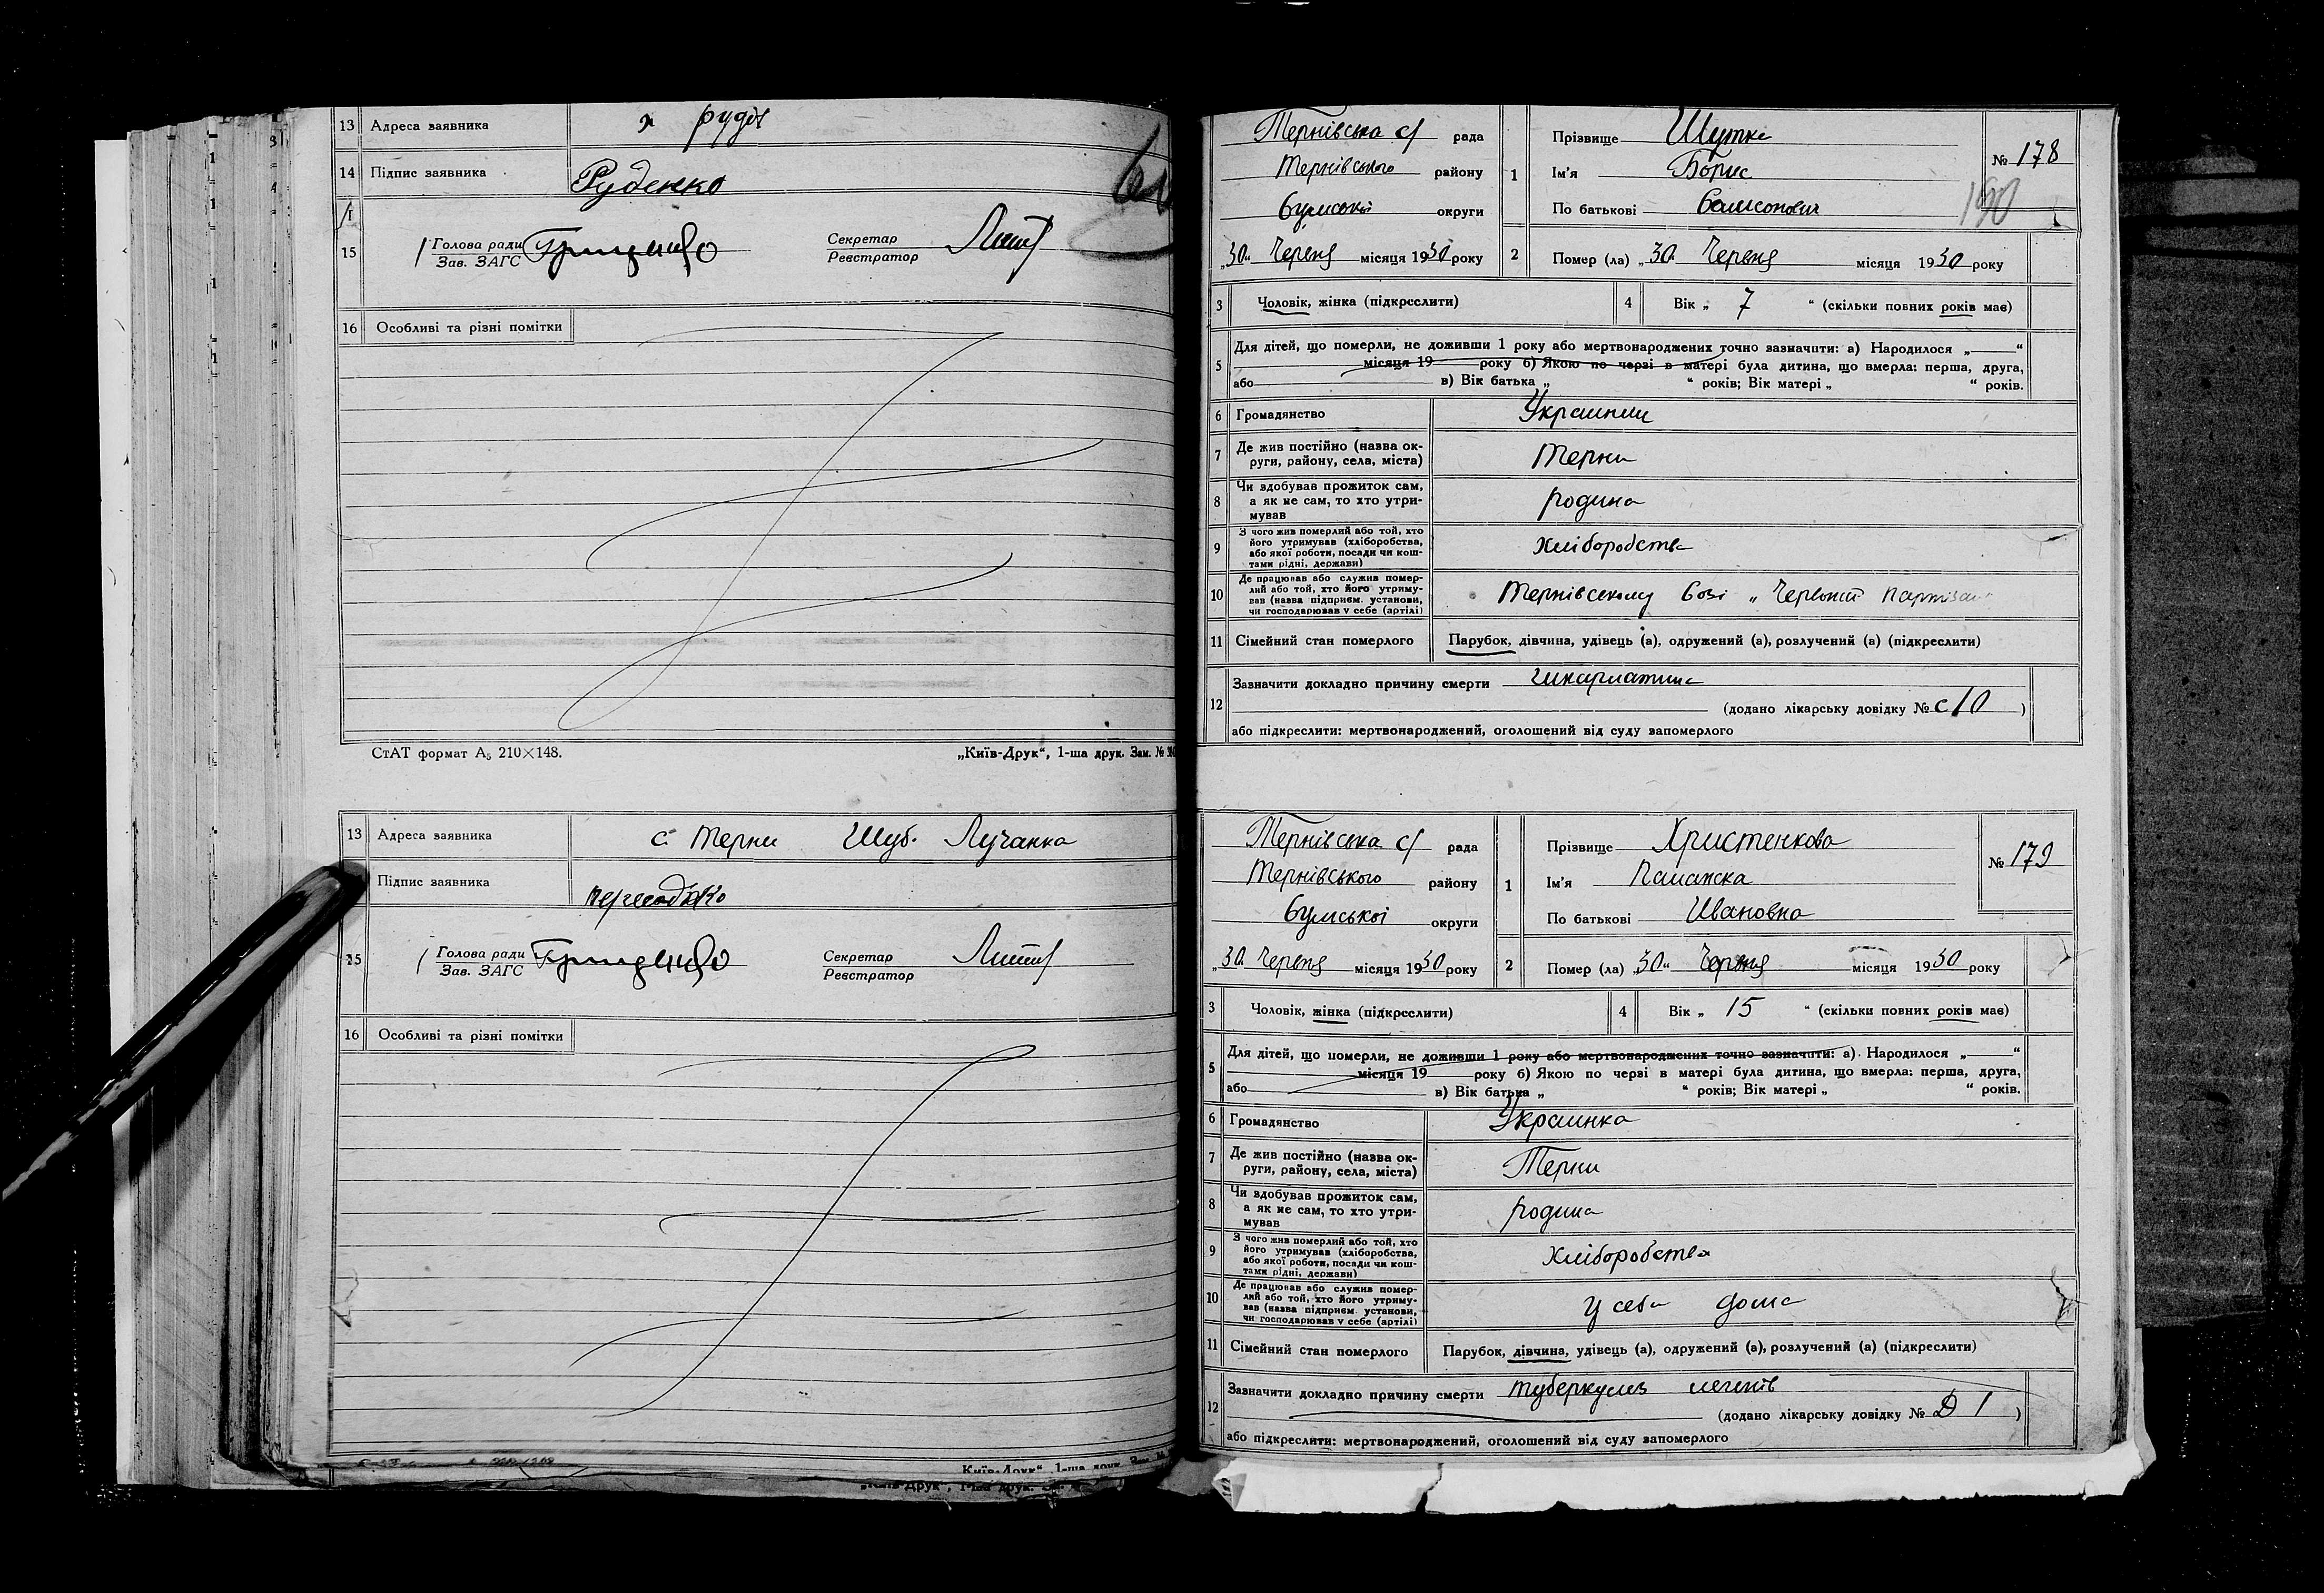 13 Адреса заявника х рудів
14 Підпис заявника Руденко
15 Голова ради
Зав. ЗАГС Гриценко Секретар
Реєстратор
16 Особливі та різні помітки
СтАТ формат А₅ 210×148. „Київ-Друк“, 1-ша друк. Зам. №
13 Адреса заявника с. Терни Шуб. Лучанка
Підпис заявника
15 Голова ради
Зав. ЗАГС Гриценко Секретар
Реєстратор
16 Особливі та різні помітки
„Київ-Друк“, 1-ша друк.
Тернівська с/ рада
Тернівського району
Сумської округи
„30“ Червня місяця 1930 року
1 Прізвище Шутка
Ім'я Борис
По батькові Самсонович
№ 178
190
2 Помер (ла) „30 Червня місяця 1930 року
3 Чоловік, жінка (підкреслити) 4 Вік „ 7 “ (скільки повних років має)
5 Для дітей, що померли, не доживши 1 року або мертвонароджених точно зазначити: а) Народилося „ “
місяця 19 року б) Якою по черзі в матері була дитина, що вмерла: перша, друга,
або в) Вік батька „ “ років; Вік матері „ “ років.
6 Громадянство Украинец
7 Де жив постійно (назва ок-
руги, району, села, міста) Терни
8 Чи здобував прожиток сам,
а як не сам, то хто утри-
мував родина
9 З чого жив померлий або той, хто
його утримував (хліборобства,
або якої роботи, посади чи кош-
тами рідні, держави) Хліборобства
10 Де працював або служив помер-
лий або той, хто його утриму-
вав (назва підприєм. установи,
чи господарював у себе (артілі) Тернівському Созі „ Червоний партизан
11 Сімейний стан померлого Парубок, дівчина, удівець (а), одружений (а), розлучений (а) (підкреслити)
12 Зазначити докладно причину смерти шкарлатина
(додано лікарську довідку № с/0 )
або підкреслити: мертвонароджений, оголошений від суду запомерлого
Тернівська с/ рада
Тернівського району
Сумської округи
„30 Червня місяця 1930 року
1 Прізвище Христенкова
Ім'я Палажка
По батькові Ивановна
№ 179
2 Помер (ла) „30“ Червня місяця 1930 року
3 Чоловік, жінка (підкреслити) 4 Вік „ 15 “ (скільки повних років має)
5 Для дітей, що померли, не доживши 1 року або мертвонароджених точно зазначити: а) Народилося „ “
місяця 19 року б) Якою по черзі в матері була дитина, що вмерла: перша, друга,
або в) Вік батька „ “ років; Вік матері „ “ років.
6 Громадянство Украинка
7 Де жив постійно (назва ок-
руги, району, села, міста) Терни
8 Чи здобував прожиток сам,
а як не сам, то хто утри-
мував родина
9 З чого жив померлий або той, хто
його утримував (хліборобства,
або якої роботи, посади чи кош-
тами рідні, держави) Хліборобства
10 Де працював або служив помер-
лий або той, хто його утриму-
вав (назва підприєм. установи,
чи господарював у себе (артілі) у себя дома
11 Сімейний стан померлого Парубок, дівчина, удівець (а), одружений (а), розлучений (а) (підкреслити)
12 Зазначити докладно причину смерти туберкульз легенів
(додано лікарську довідку № Д 1 )
або підкреслити: мертвонароджений, оголошений від суду запомерлого